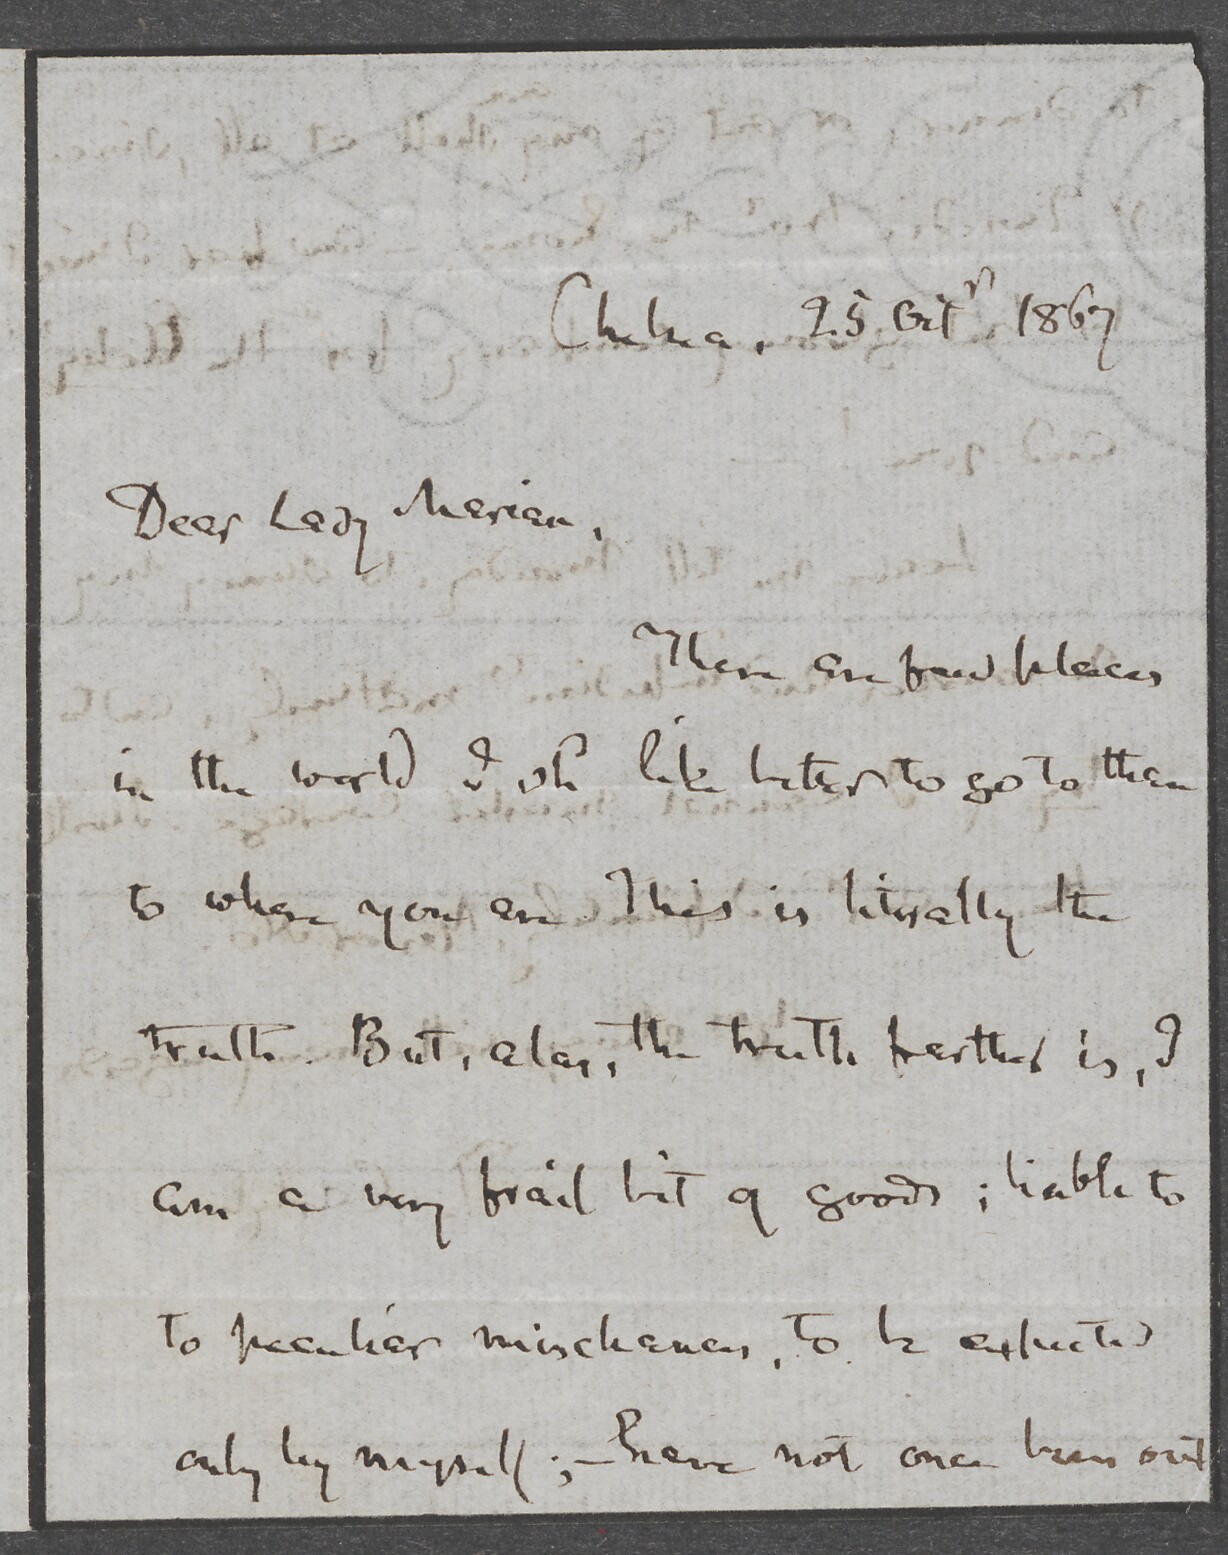 Chelsea, 25 Octr, 1867
Dear Lady Marian,
There are few places
in the world I shd like better to go to than
to where you are. This is literally the
truth. But, alas, the truth farther is, I
am a very frail bit of goods; liable to
to peculiar mischances, to be expected
only by myself;—have not once been out